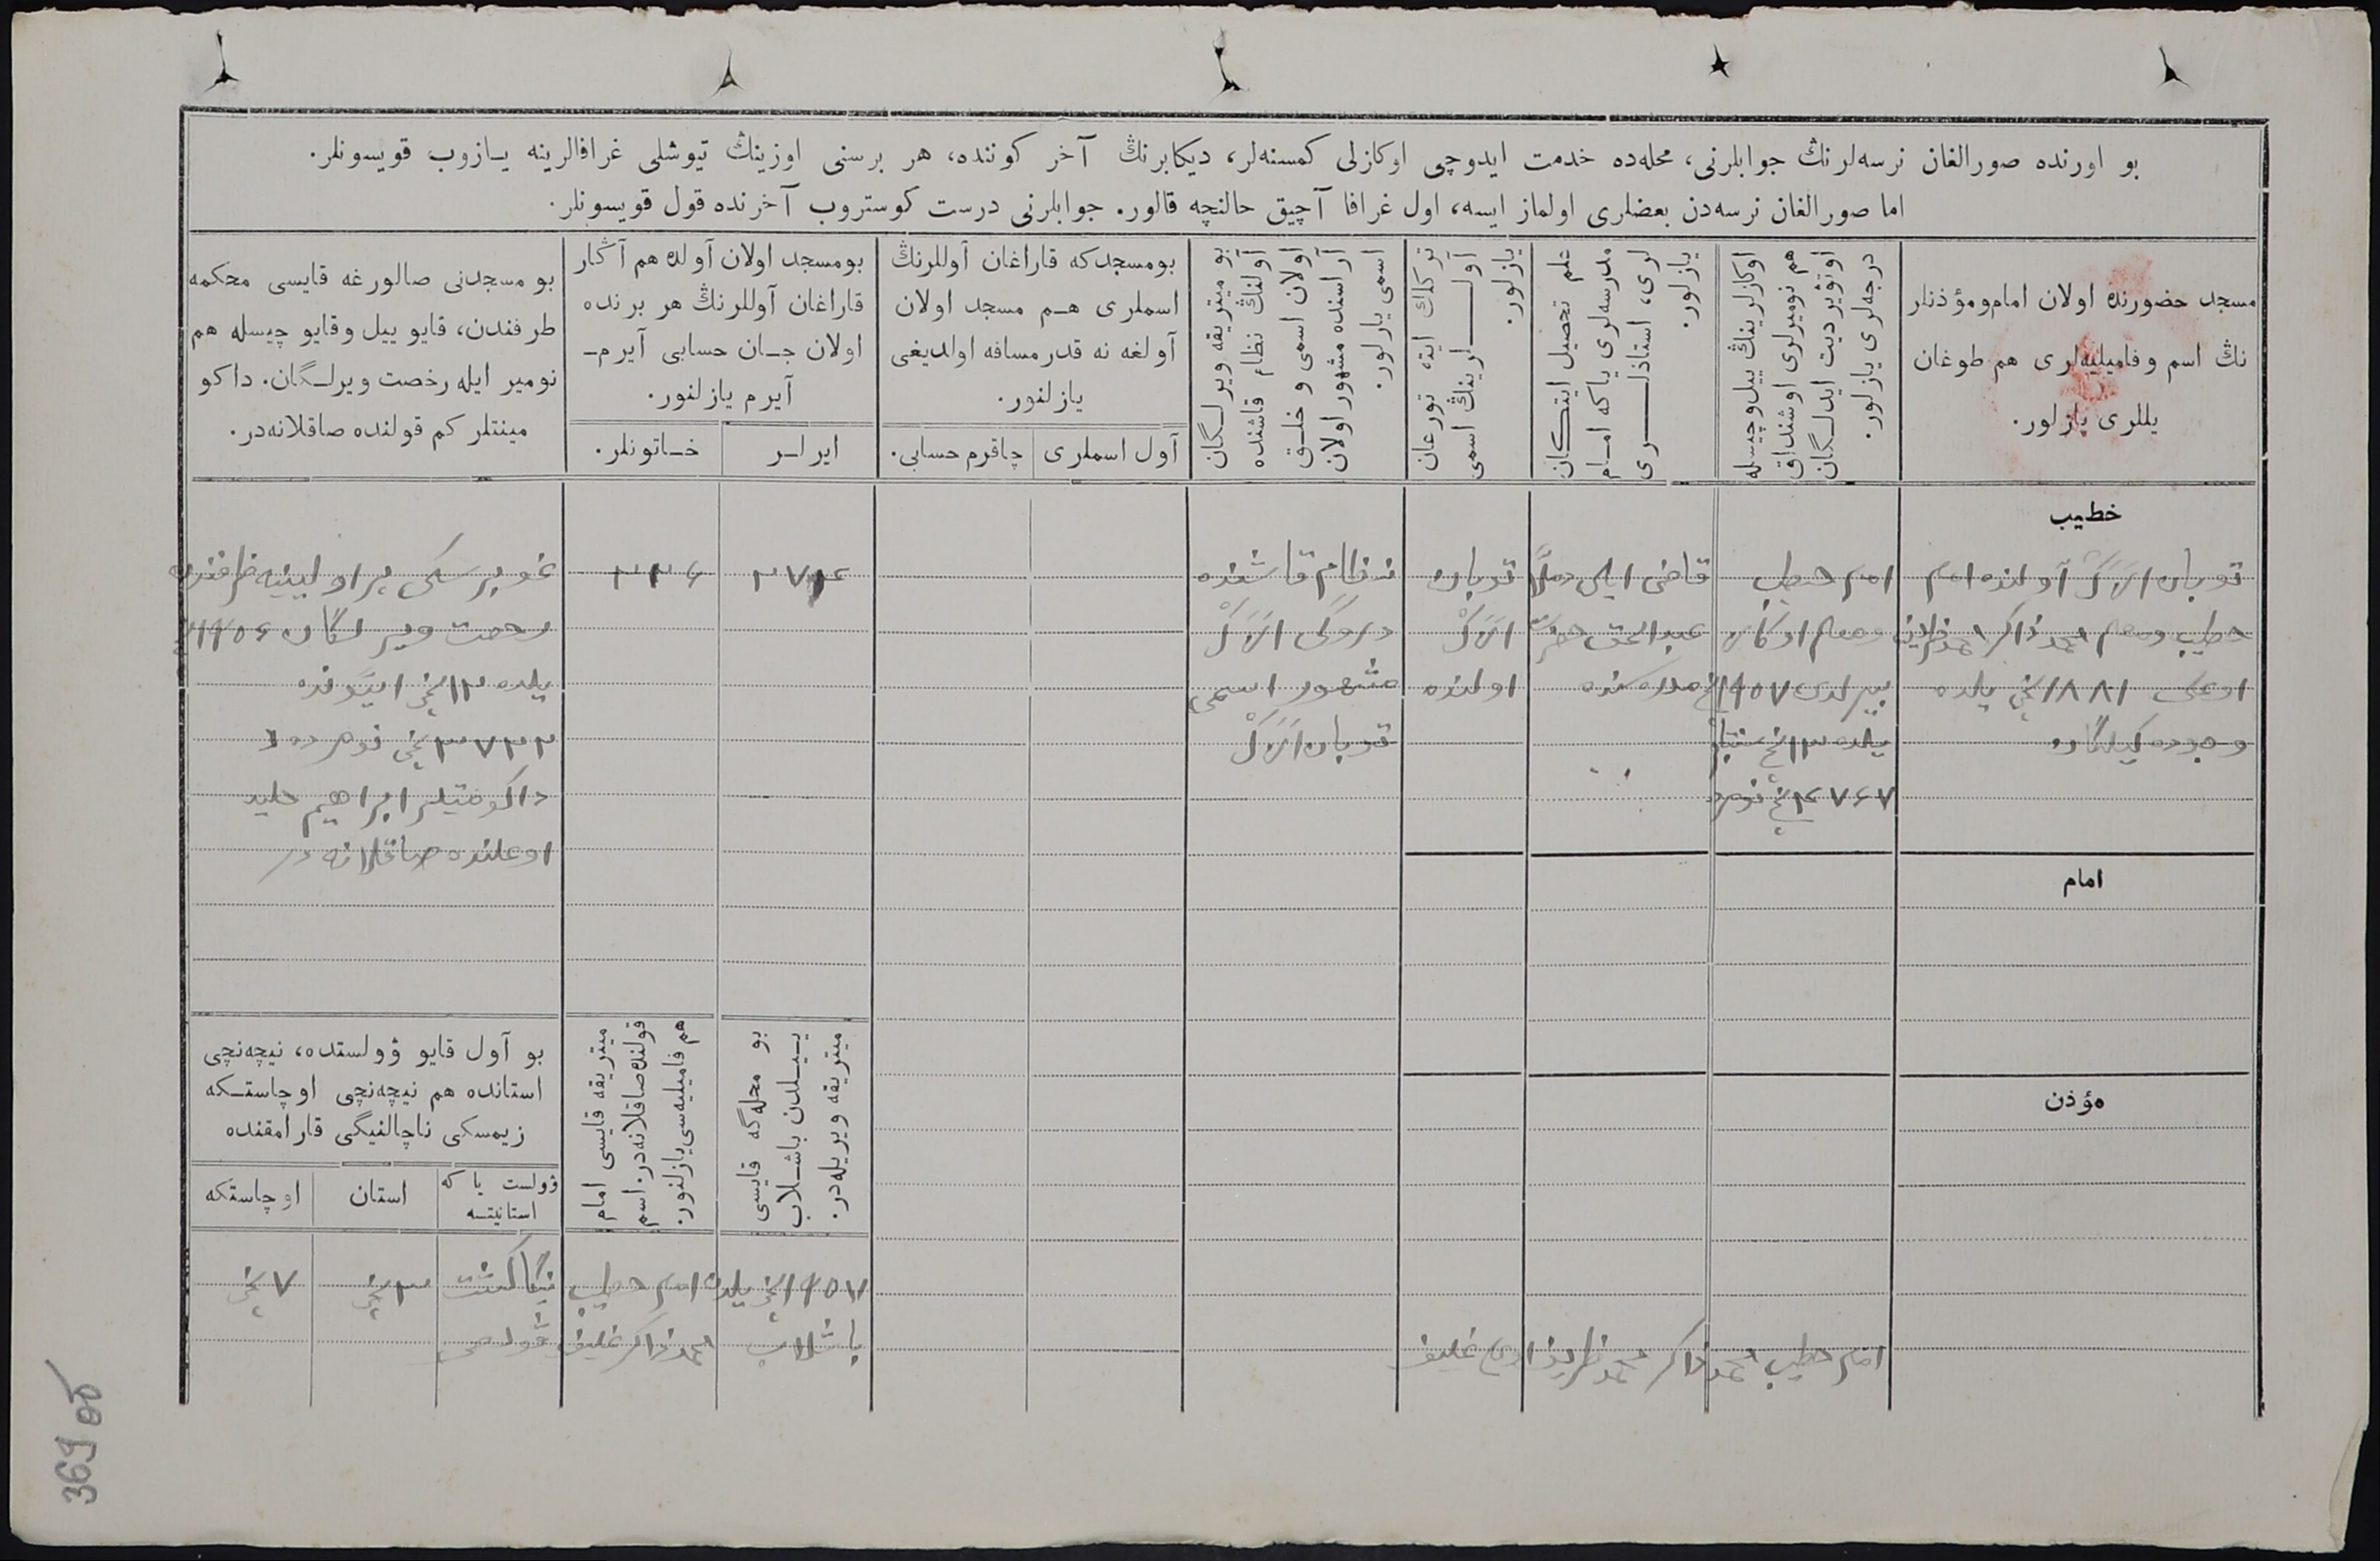 بو اورنده صورالغان نرسه‌لرنڭ جوابلرنی، محله‌ده خدمت ایدوچی اوکازلی کمسنه‌لر، دیکابرنڭ آخر کوننده، هر برسنی اوزینڭ تیوشلی غرافالرینه یـازوب قویسونلر.
اما صورالغان نرسه‌دن بعضلری اولماز ایسه، اول غرافا آچیق حالنچه قالور. جوابلرنی درست کوستروب آخرنده قول قویسونلر.
مسجد حضورنده اولان امام‌ومؤذنلر
نڭ اسم وفامیلیه‌لری هم طوغان
یللری یازلور.
اوکازلرینڭ ییل‌وچیسله
هم نومیرلری اوشنداق
اوتۋیردیت ایدلـگان
درجه‌لری یازلور.
علم تحصیل ایتـکان
مدرسه‌لری یاکه امـام
لری، استاذلــری
یازلور.
ترکلك ایته تورغان
آولــلرینڭ اسمی
یازلور.
بو میتریقه ویرلـگان
آولنڭ نظام قاشنده
اولان اسمی و خلـق
آراسنده مشهور اولان
اسمی یازلور.
بومسجدکه قاراغان آوللرنڭ
اسملری هـم مسجد اولان
آولغه نه قدر مسافه اولدیغی
یازلنور.
آول اسملری
چاقرم حسابی.
بومسجد اولان آولده هم آڭار
قاراغان آوللرنڭ هر برنده
اولان جـان حسابی آیرم‌ـ
آیرم یازلنور.
ایرلـر
خـاتونلر.
بو مسجدنی صالورغه قایسی محکمه
طرفندن، قایو ییل وقایو چیسله هم
نومیر ایله رخصت ویرلـگان. داکو
مینتلر کم قولنده صاقلانه‌در.
خطیب
توبان الاڭ آولنده امام
خطیب ومعلم محمد ذاکر محمد ظریف
اوغلی ١٨٨١نچی یلده
وجوده کیلگان
امام خطیب
ومعلم اوکازلا
بیرلدی ١٩٥٧نچی
یلده ١٣نچی
٤٧٦٧نچی نومرده
قاضی ایلی دملا
عبدالحق حضرت
مدرسه‌سنده
توبان
الاڭ
اولنده
نظام قاشنده
الاڭ
مشهور اسمی
توبان الاڭ
٢٧٤
٢٣٦
طرفندن
رخصت ویرلگان ١٩٥٦نچی
یلده ١٣نچی اییونده
٣٧٣٢نچی نومرده
داکومنتلر ابراهیم
اوغلنده صاقلانه در
امام
مؤذن
بو محله‌گه قایسی
ییـلدن باشـلاب
میتریقه ویریله‌در.
میتریقه قایسی امام
قولنده صاقلانه‌در. اسم
هم فامیلیه‌سی یازلنور.
بو آول قایو ۋولستده، نیچه‌نچی
استانده هم نیچه‌نچی اوچاستـکه
زیمسکی ناچالنیگی قارامقنده
ۋولست یا که
استانیتسه
استان
اوچاستکه
١٩٥٧نچی یلدن
باشلاب
امام خطیب
محمد ذاکر
٣نچی
٧نچی
امام خطیب محمد ذاکر محمد ظریف اوغلی
369 об